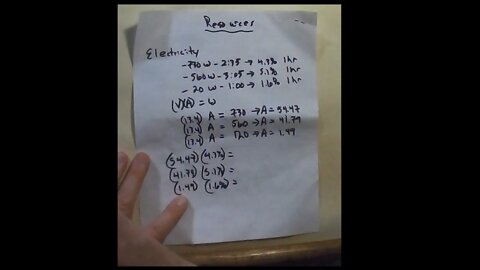 Resources
Electricity
- 730 W - 2:75 → 4.7% 1 hr
- 560 W - 3:05 → 5.1% 1 hr
- 20 W - 1:00 → 1.6% 1 hr
(V)(A) = W
(13.4) A = 730 → A = 54.47
(13.4) A = 560 → A = 41.79
(13.4) A = 20 → A = 1.49
(54.47) (4.7%) =
(41.79) (5.1%) =
(1.49) (1.6%) =